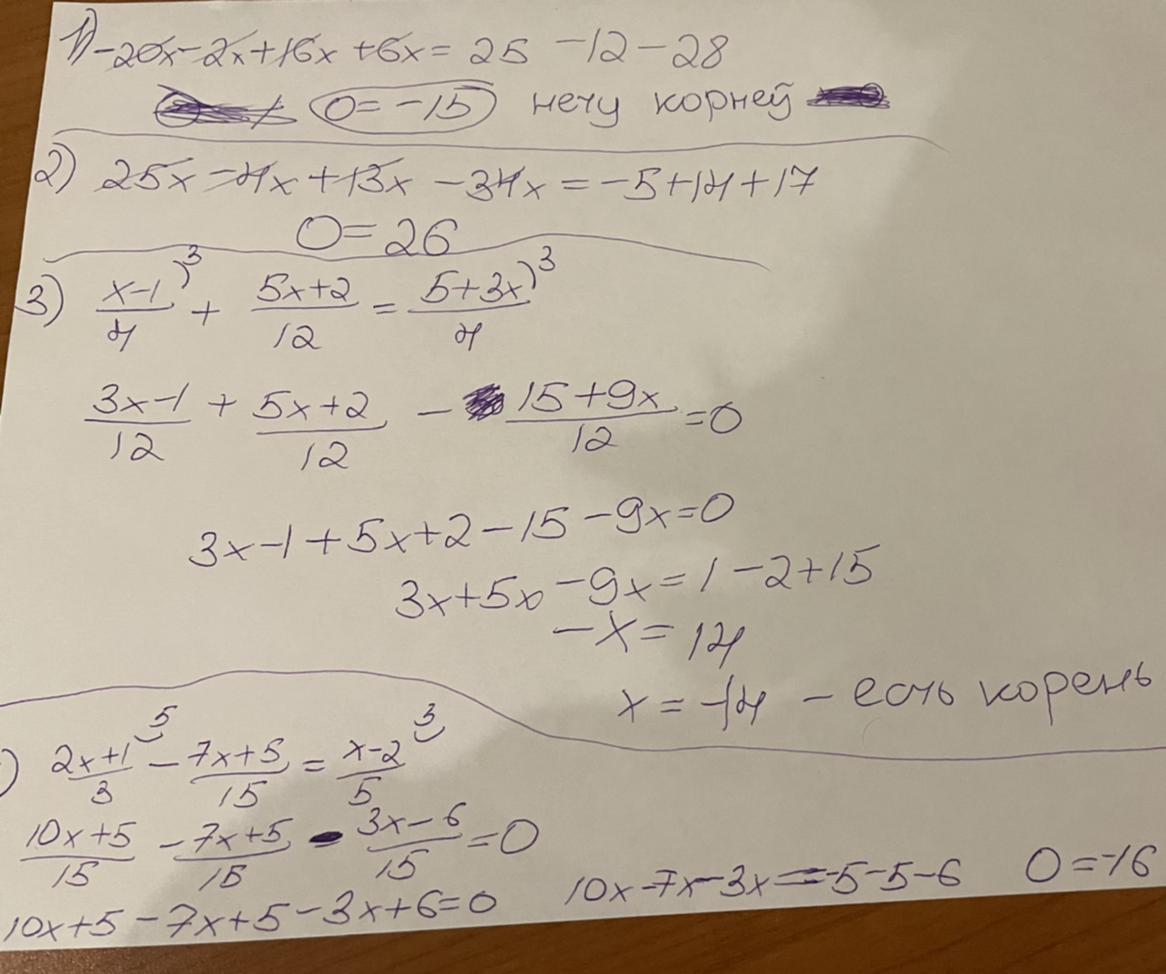 1) -20x-2x+16x+6x=25-12-28
0=-15 нечу корней
2) 25x-4x+13x-34x=-5+14+17
0=26
3) (x-1)/4 )³ + (5x+2)/12 = (5+3x)/4 )³
(3x-1)/12 + (5x+2)/12 - (15+9x)/12 =0
3x-1+5x+2-15-9x=0
3x+5x-9x=1-2+15
-x=14
x=-14 - есть корень
) (2x+1)/3 ⁵ - (7x+5)/15 = (x-2)/5 ³
(10x+5)/15 - (7x+5)/15 - (3x-6)/15 =0
10x+5-7x+5-3x+6=0
10x-7x-3x=-5-5-6 0=-16